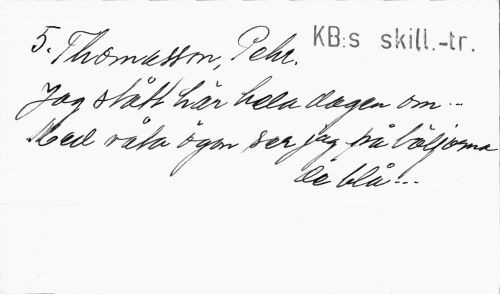 5. Thomasson, Pehr. KB:s skill.-tr.
Jag stått här hela dagen om...
Med våta ögon ser jag på böljorna
de blå...